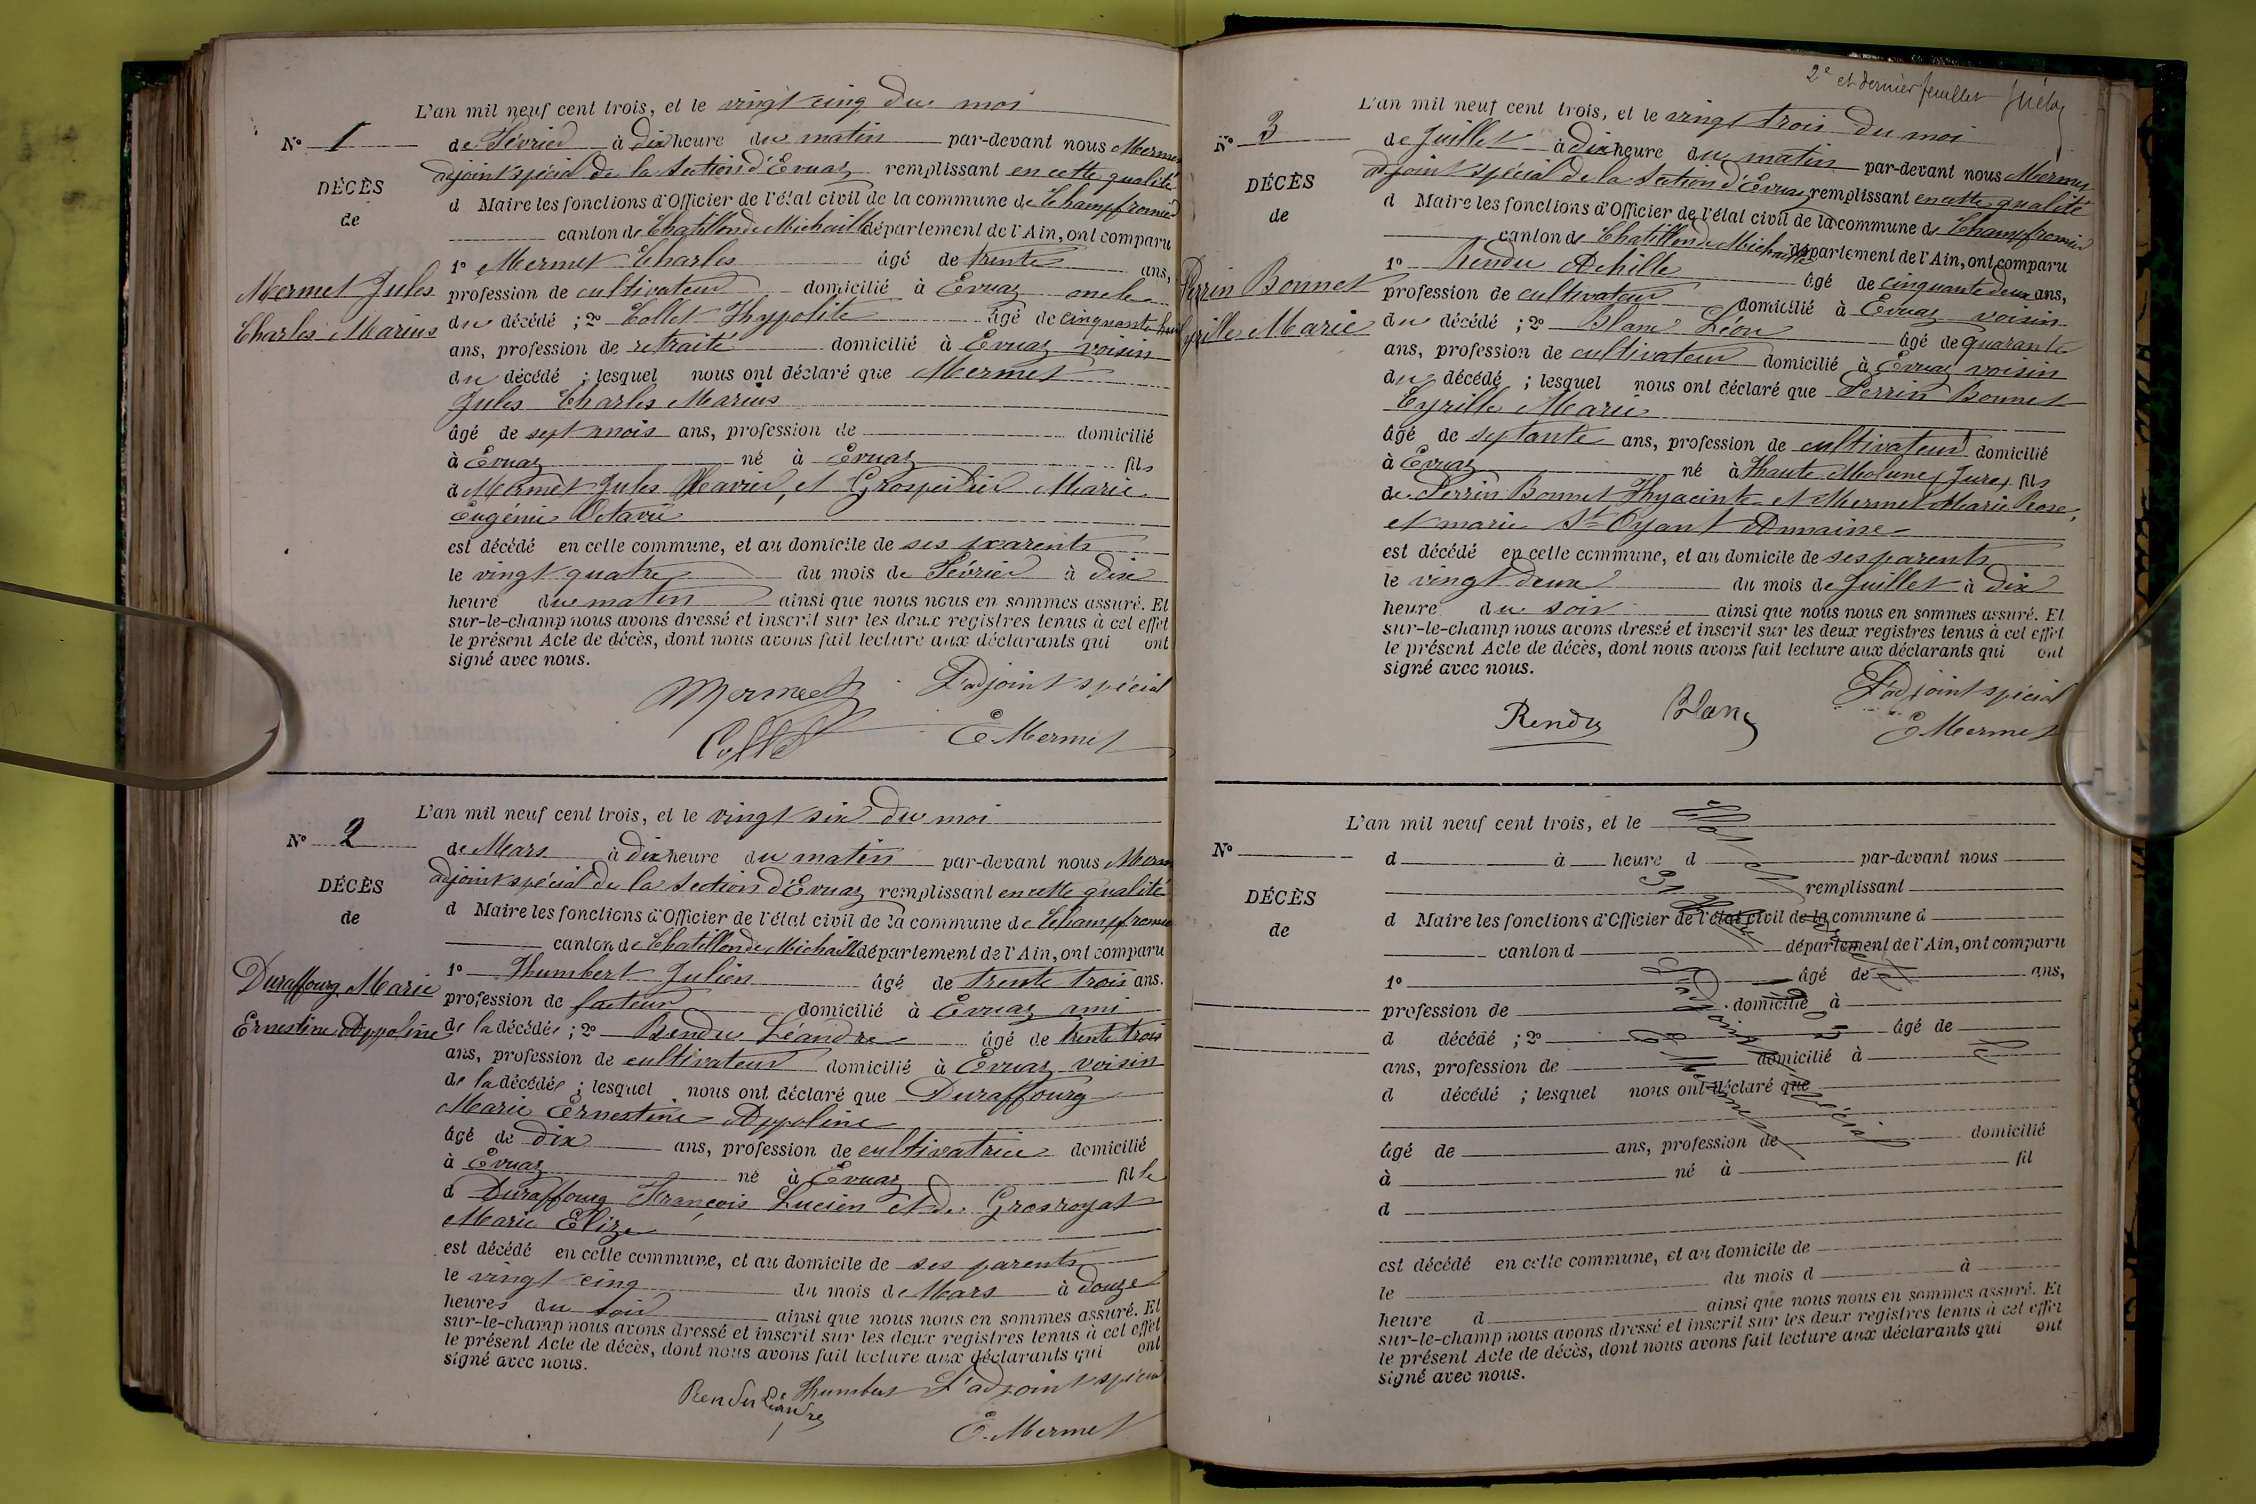 L'an mil neuf cent trois, et le vingt cinq du moi
No 1
de Février à dix heure du matin par-devant nous Mermet
adjoint spécial de la Section d'Evuaz remplissant en cette qualité
DÉCÈS
d Maire les fonctions d'Officier de l'état civil de la commune de Champfromier
de
canton de Chatillon de Michaille département de l'Ain, ont comparu
1o Mermet Charles âgé de trente ans,
Mermet Jules
profession de cultivateur domicilié à Evuaz oncle
Charles Marius
du décédé ; 2o Collet Hyppolite âgé de cinquante huit
ans, profession de retraité domicilié à Evuaz voisin
du décédé ; lesquel nous ont déclaré que Mermet
Jules Charles Marius
âgé de sept mois ans, profession de domicilié
à Evuaz né à Evuaz fils
d Mermet Jules Xavier, et Grospellier Marie
Eugénie Octavie
est décédé en cette commune, et au domicile de ses parents
le vingt quatre du mois de Février à dix
heure du matin ainsi que nous nous en sommes assuré. Et
sur-le-champ nous avons dressé et inscrit sur les deux registres tenus à cet effet
le présent Acte de décès, dont nous avons fait lecture aux déclarants qui ont
signé avec nous.
Mermet L'adjoint spécial
Collet E. Mermet
L'an mil neuf cent trois, et le vingt six du moi
No 2
de Mars à dix heure du matin par-devant nous Mermet
adjoint spécial de la Section d'Evuaz remplissant en cette qualité
DÉCÈS
d Maire les fonctions d'Officier de l'état civil de la commune de Champfromier
de
canton de Chatillon de Michaille département de l'Ain, ont comparu
1o Humbert Julien âgé de trente trois ans.
Duraffourg Marie
profession de facteur domicilié à Evuaz ami
Ernestine Appoline
de la décédée ; 2o Rendu Léandre âgé de trente trois
ans, profession de cultivateur domicilié à Evuaz voisin
de la décédée ; lesquel nous ont déclaré que Duraffourg
Marie Ernestine Appoline
âgé de dix ans, profession de cultivatrice domicilié
à Evuaz né à Evuaz fille
d Duraffourg François Lucien et de Grosroyat
Marie Elize
est décédé en cette commune, et au domicile de ses parents
le vingt cinq du mois de Mars à douze
heures du soir ainsi que nous nous en sommes assuré. Et
sur-le-champ nous avons dressé et inscrit sur les deux registres tenus à cet effet
le présent Acte de décès, dont nous avons fait lecture aux déclarants qui ont
signé avec nous.
Rendu Léandre Humbert L'adjoint spécial
E. Mermet
2e et dernier feuillet
L'an mil neuf cent trois, et le vingt trois du moi
No 3
de Juillet à dix heure du matin par-devant nous Mermet
adjoint spécial de la Section d'Evuaz remplissant en cette qualité
DÉCÈS
d Maire les fonctions d'Officier de l'état civil de la commune de Champfromier
de
canton de Chatillon de Michaille département de l'Ain, ont comparu
1o Rendu Achille âgé de cinquante deux ans,
Perrin Bonnet
profession de cultivateur domicilié à Evuaz voisin
Cyrille Marie
du décédé ; 2o Blanc Léon âgé de quarante
ans, profession de cultivateur domicilié à Evuaz voisin
du décédé ; lesquel nous ont déclaré que Perrin Bonnet
Cyrille Marie
âgé de septante ans, profession de cultivateur domicilié
à Evuaz né à Haute Molune, Jura, fils
de Perrin Bonnet Hyacinte et Mermet Marie Rose,
et marie St Oyant Annaise
est décédé en cette commune, et au domicile de ses parents
le vingt deux du mois de Juillet à dix
heure du soir ainsi que nous nous en sommes assuré. Et
sur-le-champ nous avons dressé et inscrit sur les deux registres tenus à cet effet
le présent Acte de décès, dont nous avons fait lecture aux déclarants qui ont
signé avec nous.
Rendu Blanc L'adjoint spécial
E Mermet
L'an mil neuf cent trois, et le
No
d à heure d par-devant nous
remplissant
DÉCÈS
d Maire les fonctions d'Officier de l'état civil de la commune d
de
canton d département de l'Ain, ont comparu
1o âgé de ans,
profession de domicilié à
d décédé ; 2o âgé de
ans, profession de domicilié à
d décédé ; lesquel nous ont déclaré que
âgé de ans, profession de domicilié
à né à fil
d
est décédé en cette commune, et au domicile de
le du mois d à
heure d ainsi que nous nous en sommes assuré. Et
sur-le-champ nous avons dressé et inscrit sur les deux registres tenus à cet effet
le présent Acte de décès, dont nous avons fait lecture aux déclarants qui ont
signé avec nous.
L'adjoint spécial
E. Mermet